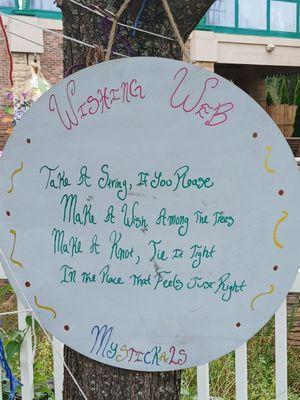 Wishing Web
Take A String, If You Please
Make A Wish Among The Trees
Make A Knot, Tie It Tight
In the Place That Feels Just Right
Mystickals